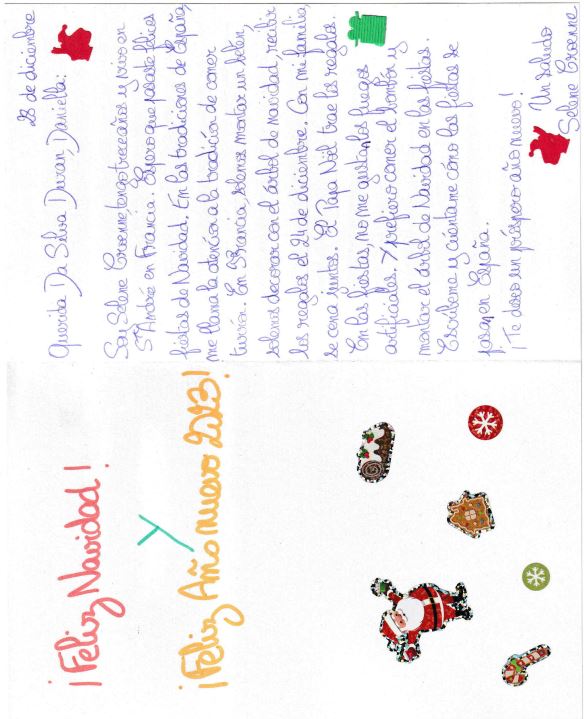 ¡Feliz Navidad!
Y
¡Feliz Año nuevo 2023!
28 de diciembre
Querida Da Silva Duran, Daniella:
Soy Selene Croenne tengo trece años y vivo en
St André en Francia. Espero que pasaste felices
fiestas de Navidad. En las tradiciones de España,
me llama la atención a la tradición de comer
turrón. En Francia, solemos montar un belén,
solemos decorar con el árbol de navidad, recibir
los regalos el 24 de diciembre. Con mi familia,
se cena juntos. El Papa Nöl trae los regalos.
En las fiestas, no me gustan los fuegos
artificiales. Y prefiero comer el bombón y
montar el árbol de Navidad en las fiestas.
Escribeme y cuéntame cómo las fiestas se
pasan en España.
¡Te deseo un próspero año nuevo!
Un saludo
Selene Croenne